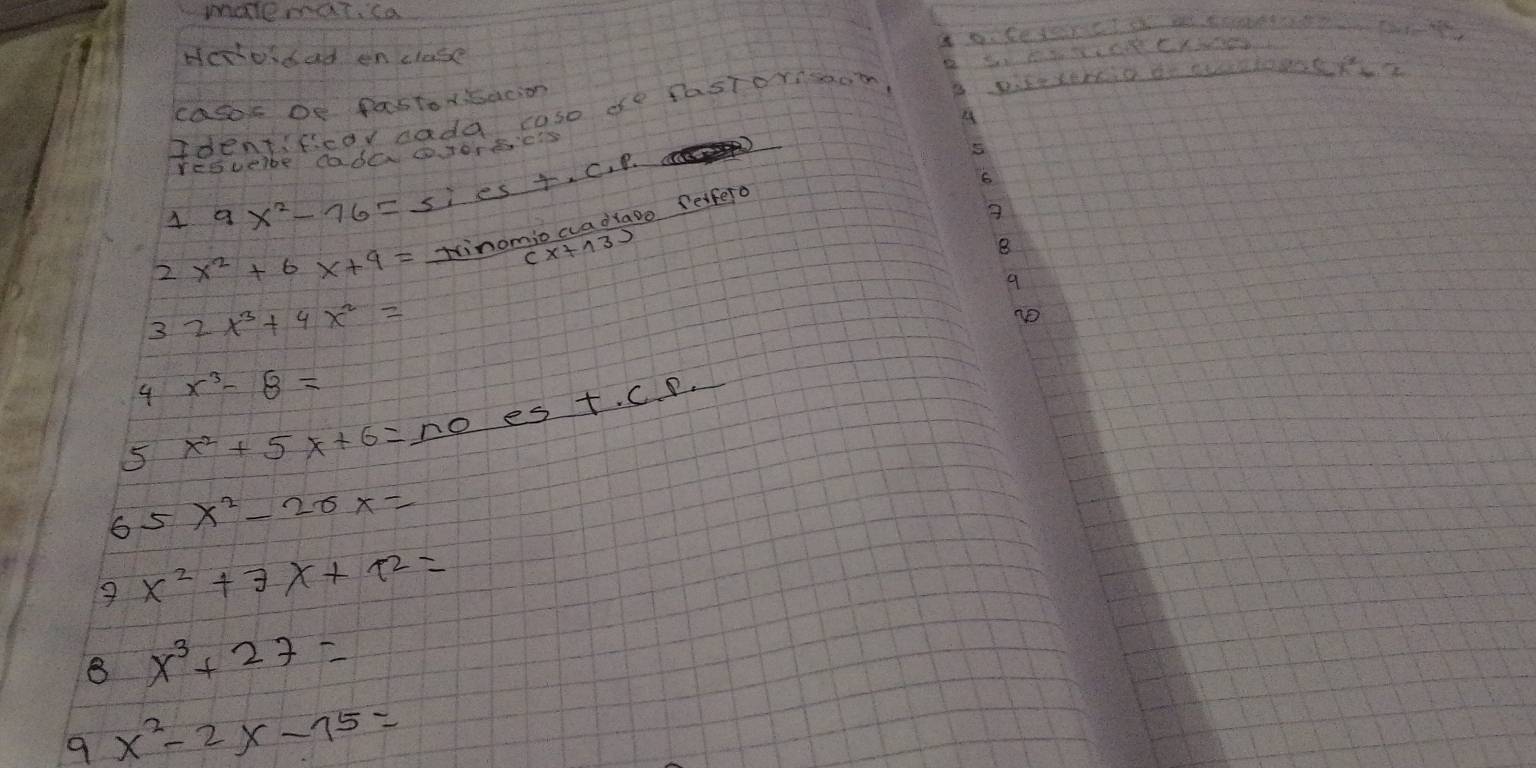 matematica
Actividad en clase
casos De fastorisacion
Identificar cada caso de fastorisacion,
resuelbe cada
1 9x² - 16 = si es t.c.p.
2 x² + 6x + 9 = trinomio cuadrado perfeto
(x+13)
3 2x³ + 4x² =
4 x³ - 8 =
5 x² + 5x + 6 = no es t.c.p.
6 5x² - 20x =
7 x² + 7x + 12 =
8 x³ + 27 =
9 x² - 2x - 15 =
1
2
3
4
5
6
7
8
9
10